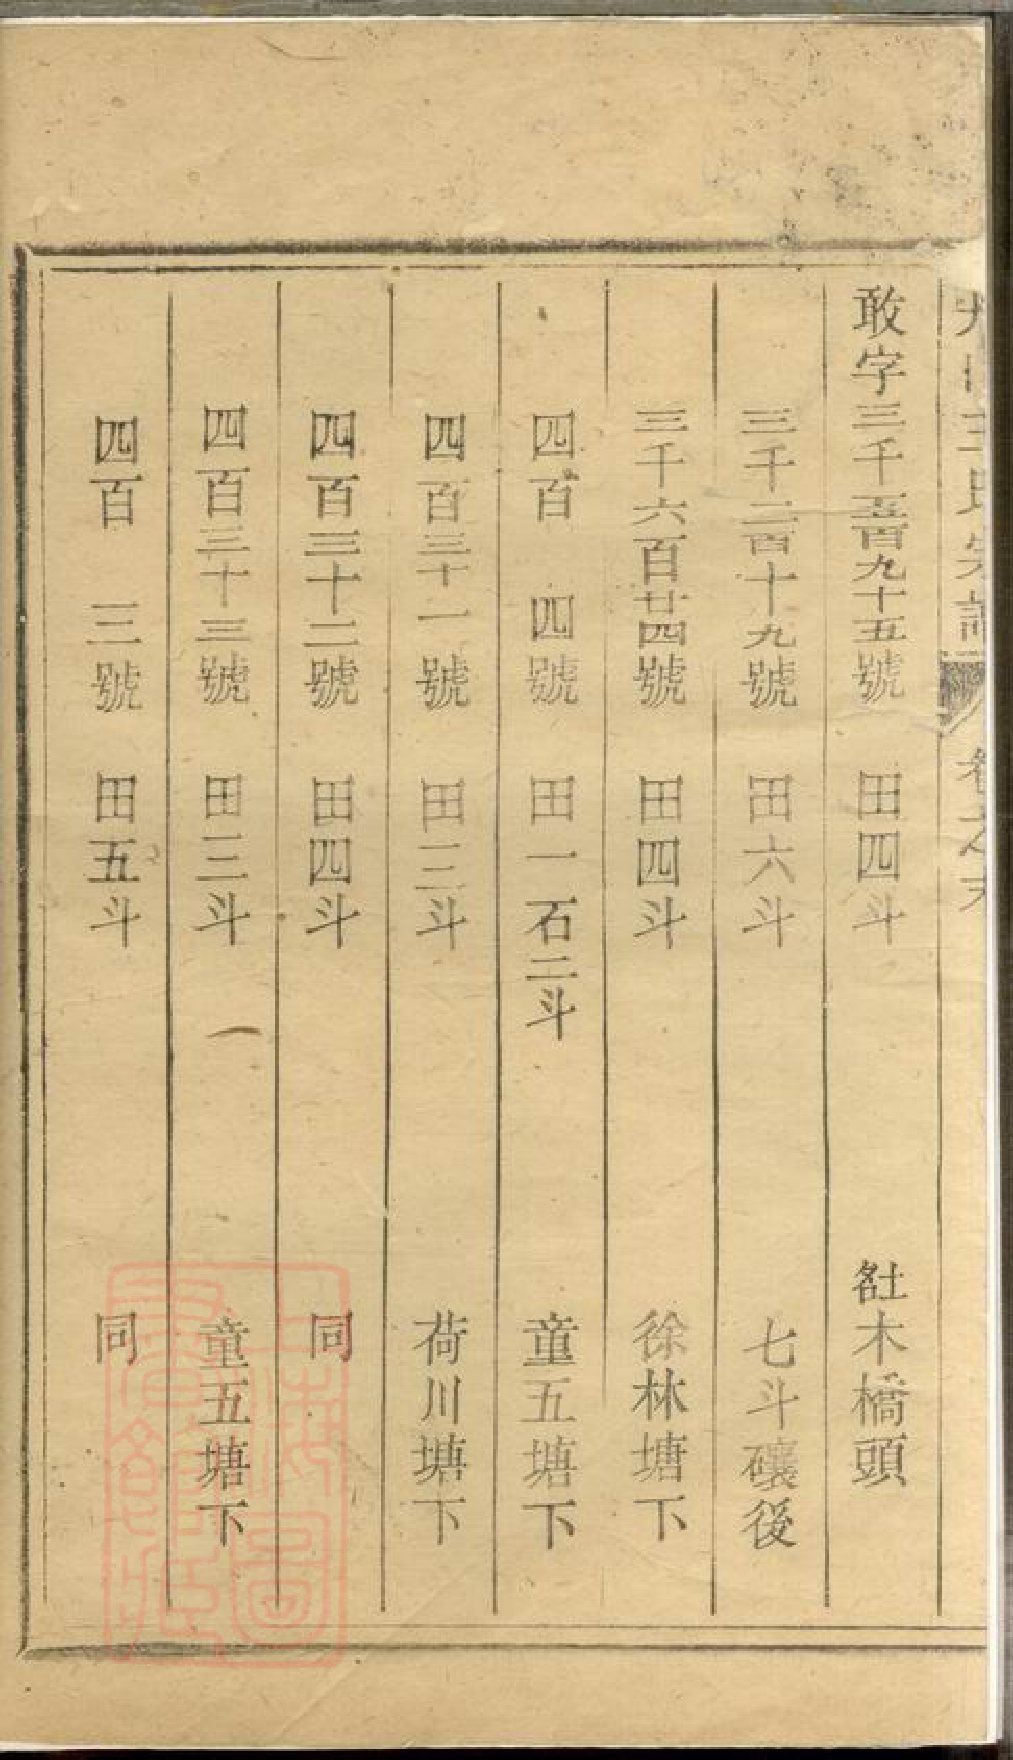 敢字三千五百九十五號　田四斗　土名木橋頭
三千二百十九號　田六斗　七斗磉後
三千六百廿四號　田四斗　徐林塘下
四百　四號　田一石二斗　童五塘下
四百三十一號　田三斗　荷川塘下
四百三十二號　田四斗　同
四百三十三號　田三斗　童五塘下
四百　三號　田五斗　同